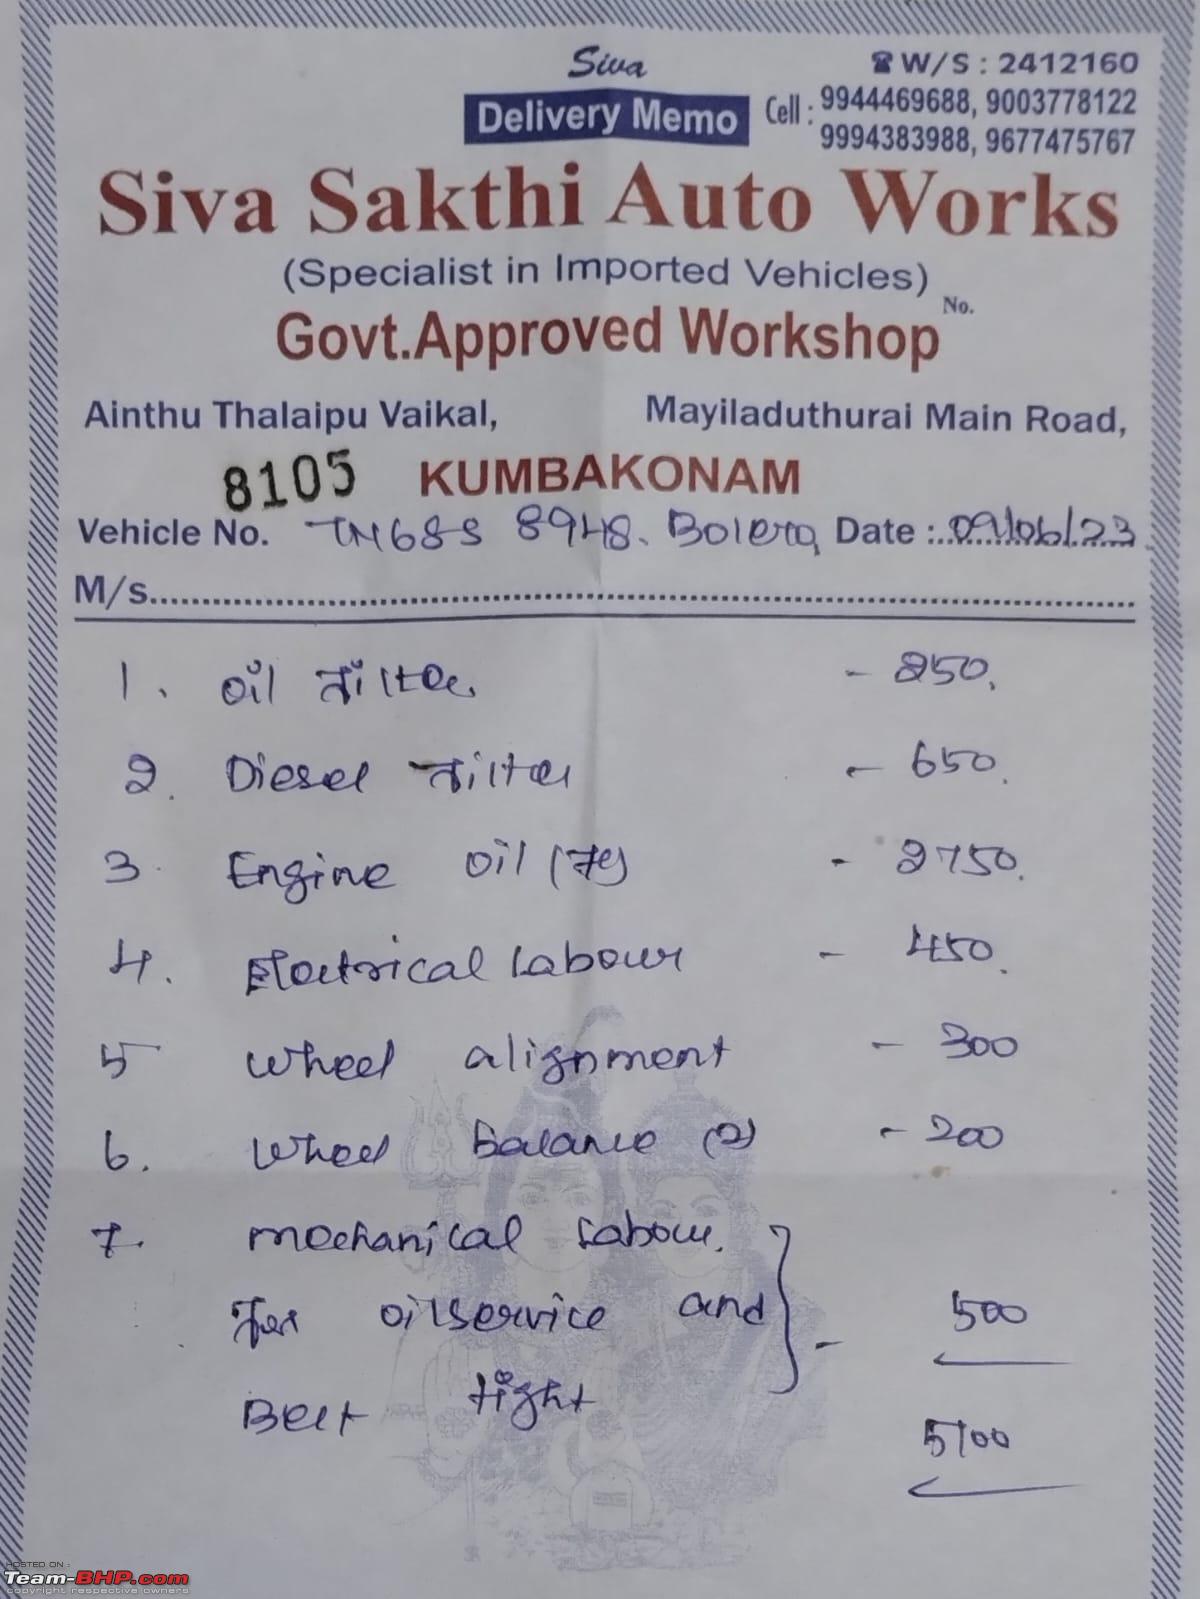 Siva
Delivery Memo
W/S : 2412160
Cell : 9944469688, 9003778122
9994383988, 9677475767
Siva Sakthi Auto Works
(Specialist in Imported Vehicles)
No.
Govt.Approved Workshop
Ainthu Thalaipu Vaikal, Mayiladuthurai Main Road,
8105 KUMBAKONAM
Vehicle No. TN68S 8948. Bolero Date : 09/06/23
M/s.
1. oil filter - 250.
2. Diesel filter - 650.
3. Engine oil (7) - 2750.
4. Electrical Labour - 450.
5 Wheel alignment - 300
6. Wheel Balance (2) - 200
7. Mechanical Labour.
For oil service and - 500
Belt tight
5100
HOSTED ON :
Team-BHP.com
copyright respective owners